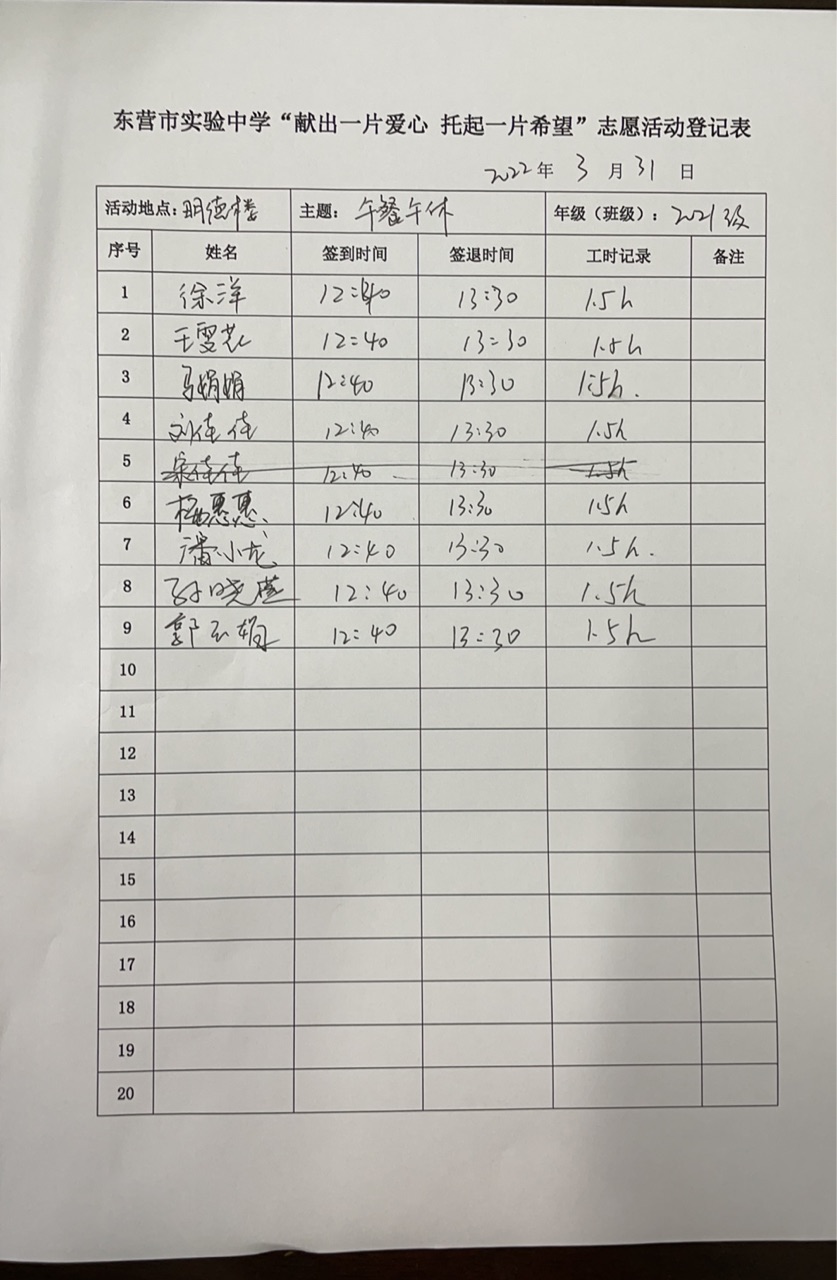 东营市实验中学“献出一片爱心 托起一片希望”志愿活动登记表
2022年 3 月 31 日
活动地点：明德楼 主题： 午餐午休 年级（班级）：2021级
序号 姓名 签到时间 签退时间 工时记录 备注
1 徐洋 12:40 13:30 1.5h
2 王雪 12:40 13:30 1.5h
3 马娟娟 12:40 13:30 1.5h.
4 刘佳佳 12:40 13:30 1.5h
5 宋佳佳 12:40 13:30 1.5h
6 杨惠惠 12:40 13:30 1.5h
7 潘小龙 12:40 13:30 1.5h.
8 孙晓 12:40 13:30 1.5h
9 郭 娟 12:40 13:30 1.5h
10
11
12
13
14
15
16
17
18
19
20